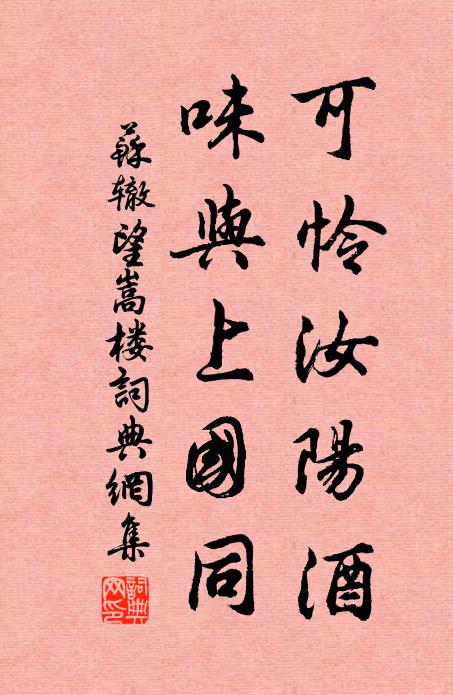 可怜汝陽酒
味與上國同
蘇辙望嵩楼詞典網集
詞典网印